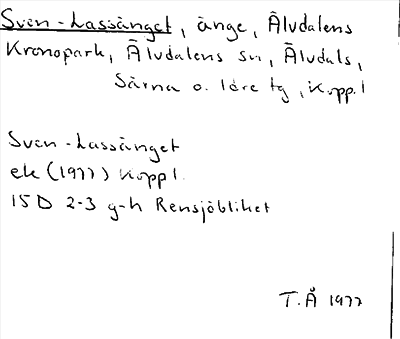 Sven-Lassänget, änge, Älvdalens
Kronopark, Älvdalens sn, Älvdals,
Särna o. Idre tg, Kopp.l
Sven-Lassänget
ek (1977) Kopp l.
15D 2-3 g-h Rensjöbliket
T.Å 1977